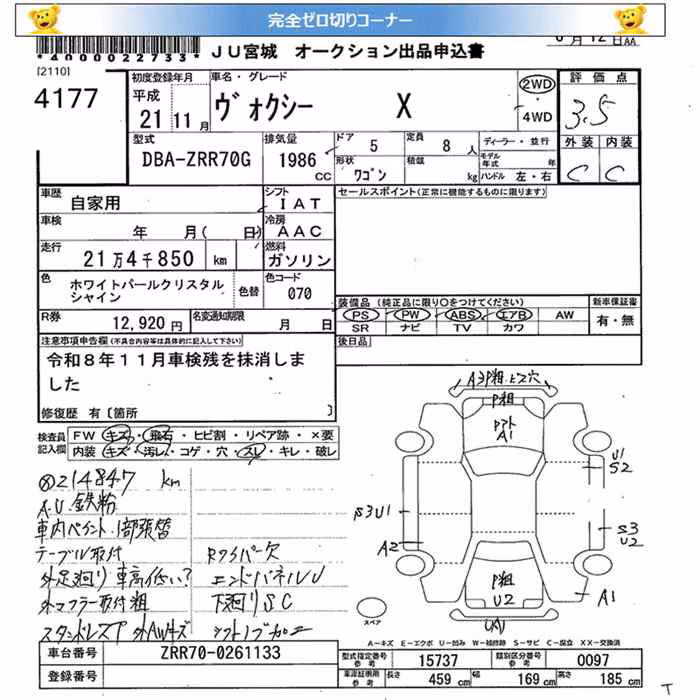 完全ゼロ切りコーナー
*4000022733*
JU宮城 オークション出品申込書
[2110]
4177
初度登録年月
平成
21 11月
車名・グレード
ヴォクシー X
2WD
4WD
評価点
3.5
外装 内装
C C
型式
DBA-ZRR70G
排気量
1986 CC
ドア 5
定員 8 人
形状 ワゴン
積載 kg
ディーラー・並行
モデル年式 年
ハンドル 左・右
車歴
自家用
シフト
IAT
セールスポイント(正常に機能するものに限ります)
車検
年 月( 日)
冷房
AAC
走行
21万4千850 km
燃料
ガソリン
色
ホワイトパールクリスタル
シャイン
色替
色コード
070
装備品 (純正品に限り○をつけてください)
PS PW ABS エアB AW
SR ナビ TV カワ
新車保証書
有・無
R券
12,920円
名変通知期限
月 日
後日品
注意事項申告欄(不具合内容等は具体的に記入して下さい)
令和8年11月車検残を抹消しま
した
修復歴 有〔箇所 〕
検査員
記入欄
FW キズ・飛石・ヒビ割・リペア跡・×要
内装 キズ・汚レ・コゲ・穴・スレ・キレ・破レ
214847 km
A.U.鉄粉
車内ペイント、1部張替
テーブル取付 Rワイパー欠
外足廻り 車高低い? エンドパネルU
外マフラー取付粗 下廻りSC
外AWキズ シフトノブ加工
A3P粗.ビス穴
P粗
A1
U1
S2
S3U1
A2
S3
U2
P粗
U2
A1
スペア
A－キズ E－エクボ U－凹み W－補修跡 S－サビ C－腐食 XX－交換済
車台番号 ZRR70-0261133
登録番号
型式指定番号
参考
15737
類別区分番号
参考
0097
車両証明用
参考
長さ 459 cm
幅 169 cm
高さ 185 cm
T